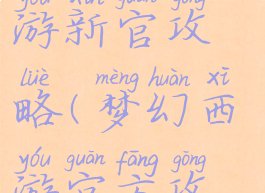 yóu xīn guān gōng
游新官攻
lüè mèng huàn xī
略(梦幻西
yóu guān fāng gōng
游官方攻